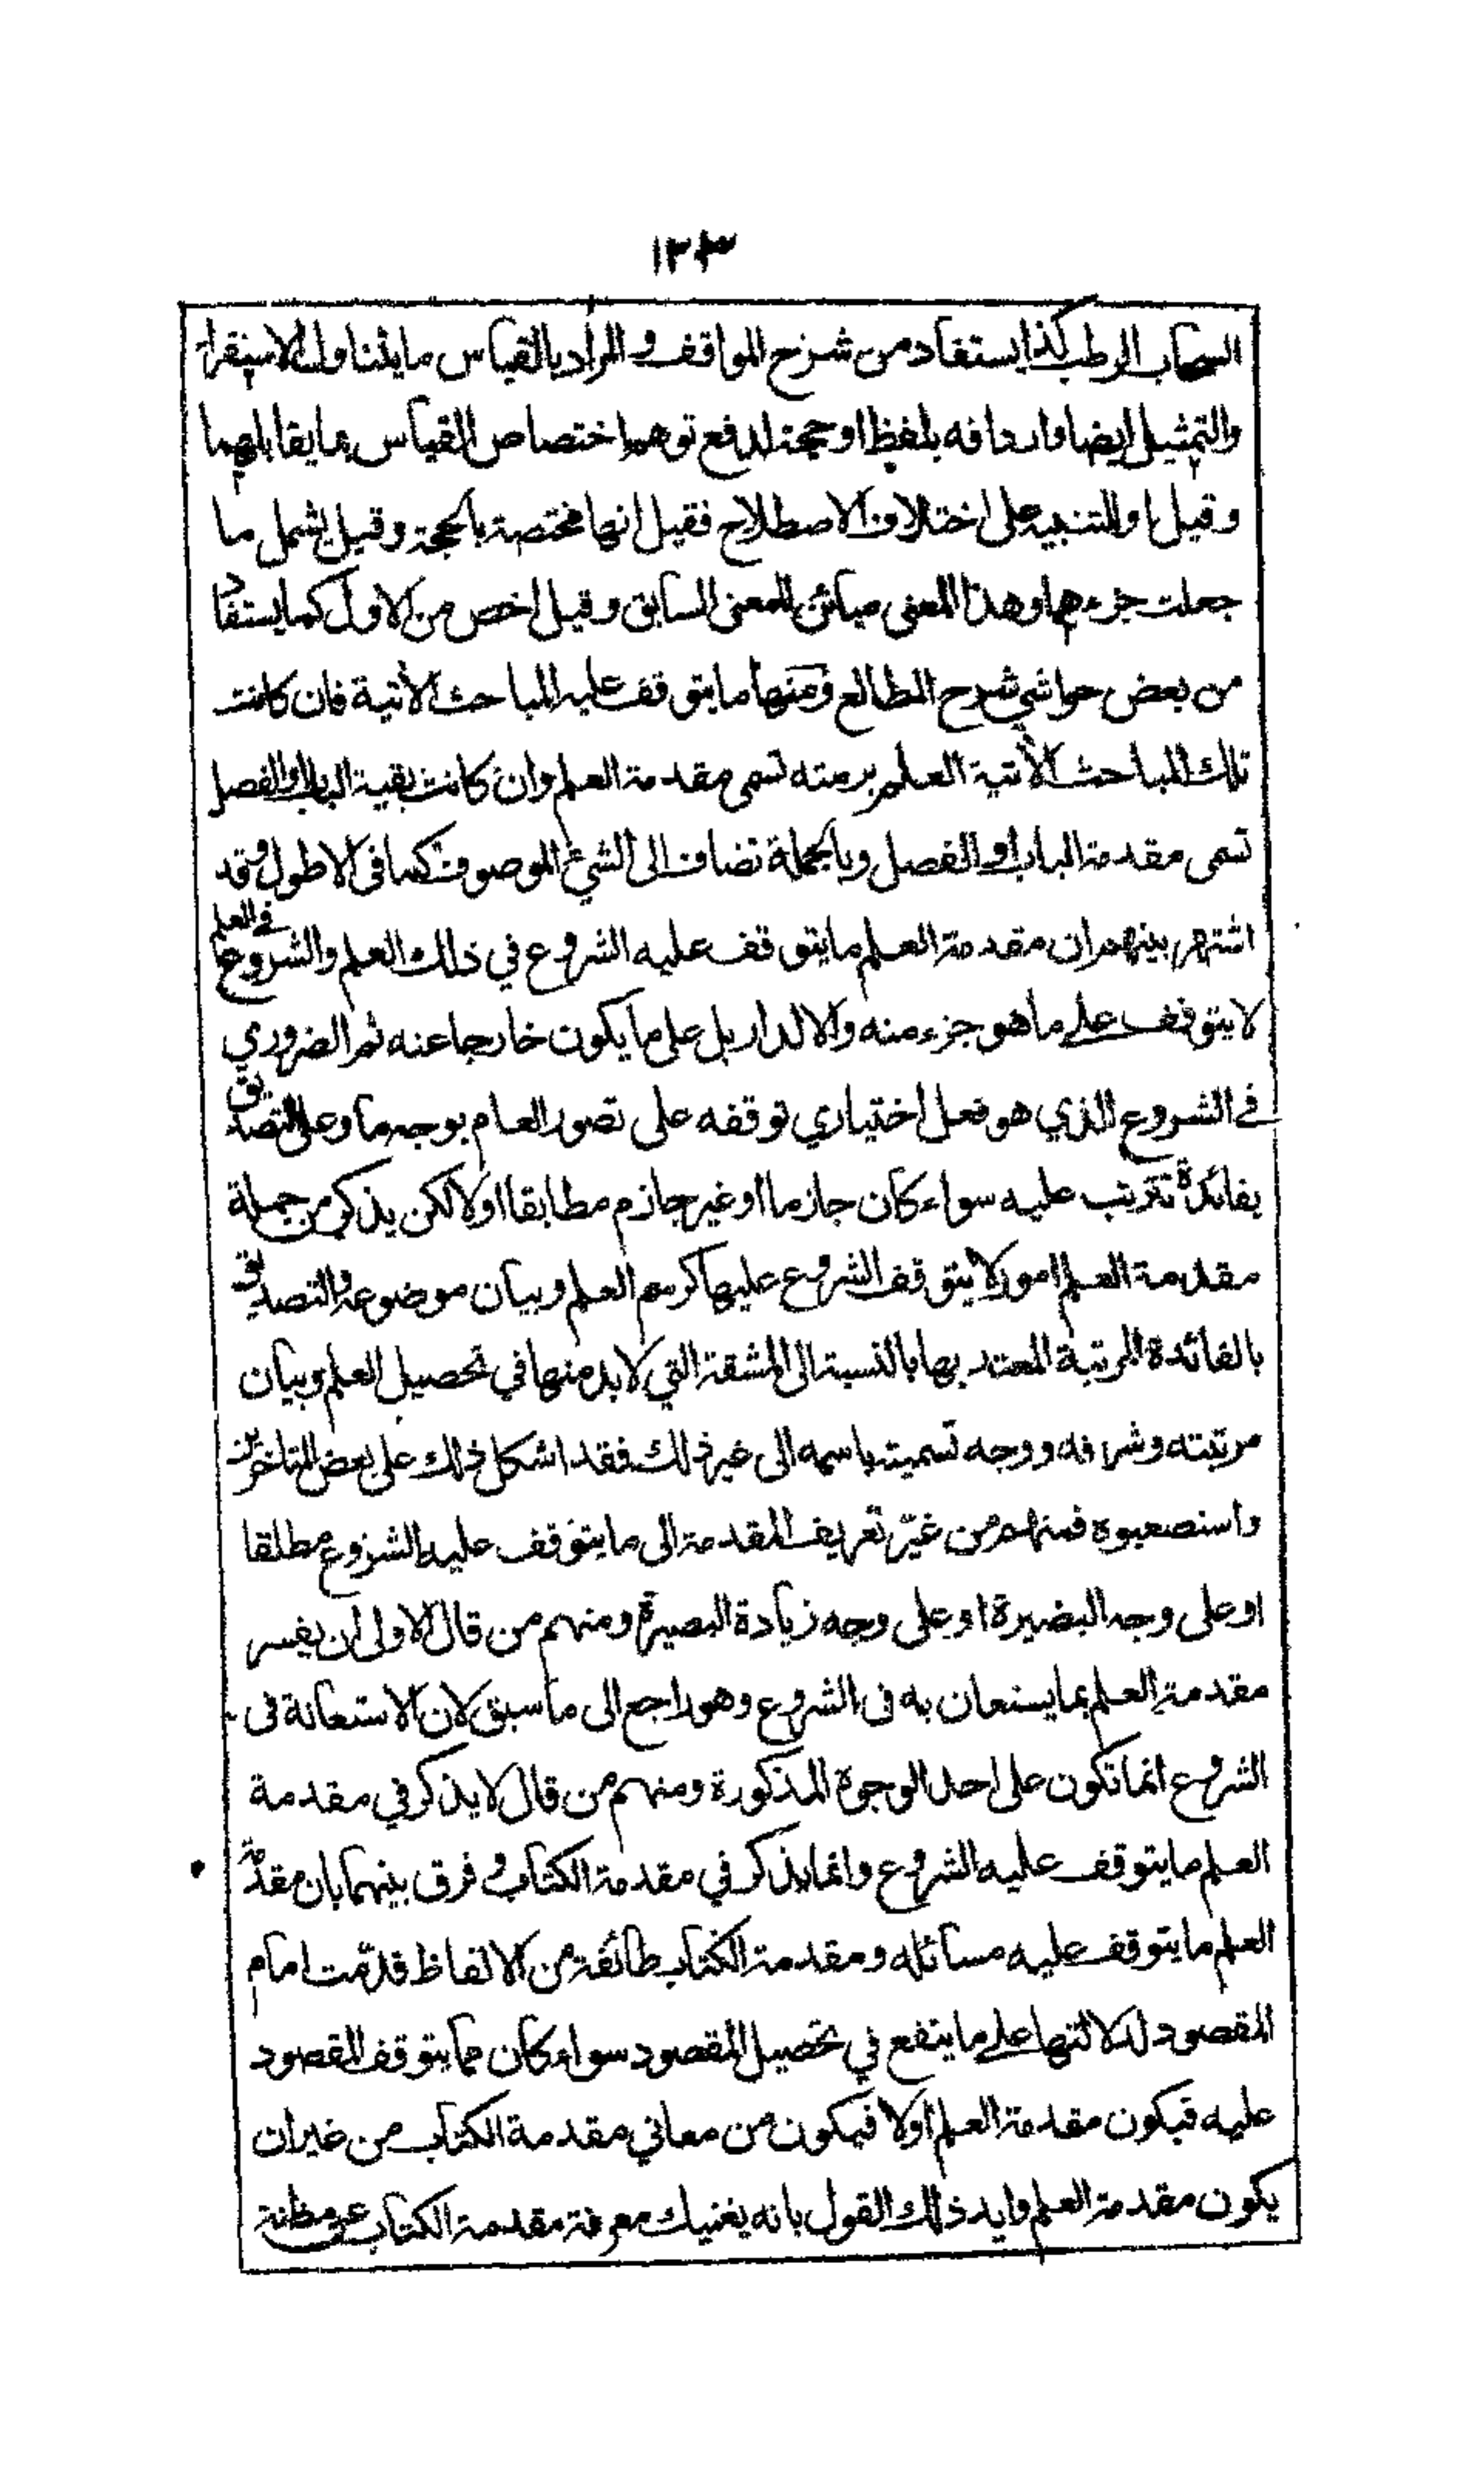 ١٢٣
السحاب الرطب كذا يستفاد من شرح المواقف والمراد بالقياس ما يتناول الاستقراء
والتمثيل ايضا واردافه بلفظ او حجة لدفع توهم اختصاص القياس بما يقابلهما
وقيل او للتنبيه على اختلاف الاصطلاح فقيل انها مختصة بالحجة وقيل يشمل ما
جعلت جزءهما وهذا المعنى مبائن للمعنى السابق وقيل اخص من الاول كما يستفاد
من بعض حواشي شرح المطالع ومنها ما يتوقف عليه المباحث الآتية فان كانت
تلك المباحث الآتية العلم برمته تسمى مقدمة العلم وان كانت بقية الباب او الفصل
تسمى مقدمة الباب او الفصل وبالجملة تضاف الى الشيء الموصوف كما في الاطول وقد
اشتهر بينهم ان مقدمة العلم ما يتوقف عليه الشروع في ذلك العلم والشروع في العلم
لا يتوقف على ما هو جزء منه والا لدار بل على ما يكون خارجا عنه ثم الضروري
في الشروع الذي هو فعل اختياري توقفه على تصور العام بوجه ما وعلى التصديق
بفائدة تترتب عليه سواء كان جازما او غير جازم مطابقا اولا لكن يذكر من جملة
مقدمة العلم امور لا يتوقف الشروع عليها كرسم العلم وبيان موضوعه والتصديق
بالفائدة المرتبة المعتد بها بالنسبة الى المشقة التي لا بد منها في تحصيل العلم وبيان
مرتبته وشرفه ووجه تسميته باسمه الى غير ذلك فقد اشكل ذلك على بعض المتاخرين
واستصعبوه فمنهم من غيّر تعريف المقدمة الى ما يتوقف عليه الشروع مطلقا
او على وجه البصيرة او على وجه زيادة البصيرة ومنهم من قال الاولى ان يفسر
مقدمة العلم بما يستعان به في الشروع وهو راجع الى ما سبق لان الاستعانة في
الشروع انما تكون على احد الوجوه المذكورة ومنهم من قال لا يذكر في مقدمة
العلم ما يتوقف عليه الشروع وانما يذكر في مقدمة الكتاب وفرق بينهما بان مقدمة
العلم ما يتوقف عليه مسائله ومقدمة الكتاب طائفة من الالفاظ قدّمت امام
المقصود لدلالتها على ما ينفع في تحصيل المقصود سواء كان مما يتوقف المقصود
عليه فيكون مقدمة العلم اولا فيكون من معاني مقدمة الكتاب من غير ان
يكون مقدمة العلم وايد ذلك القول بانه يغنيك معرفة مقدمة الكتاب عن مظنة